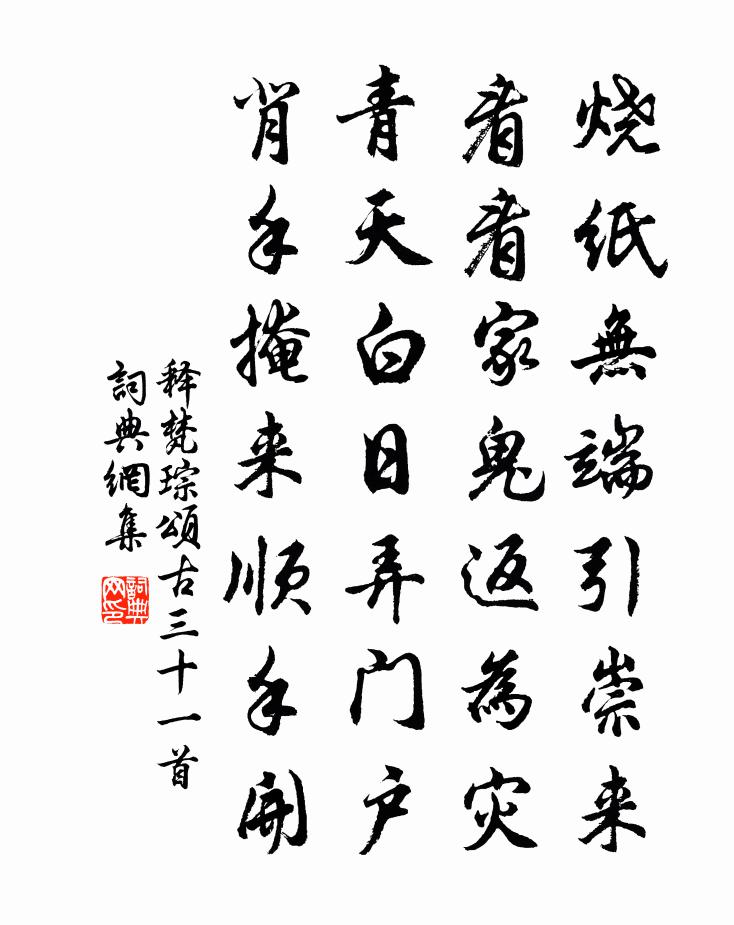 烧纸無端引祟来
看看家鬼返為灾
青天白日弄门户
背手掩来順手開
释梵琮頌古三十一首
詞典網集
詞典网印